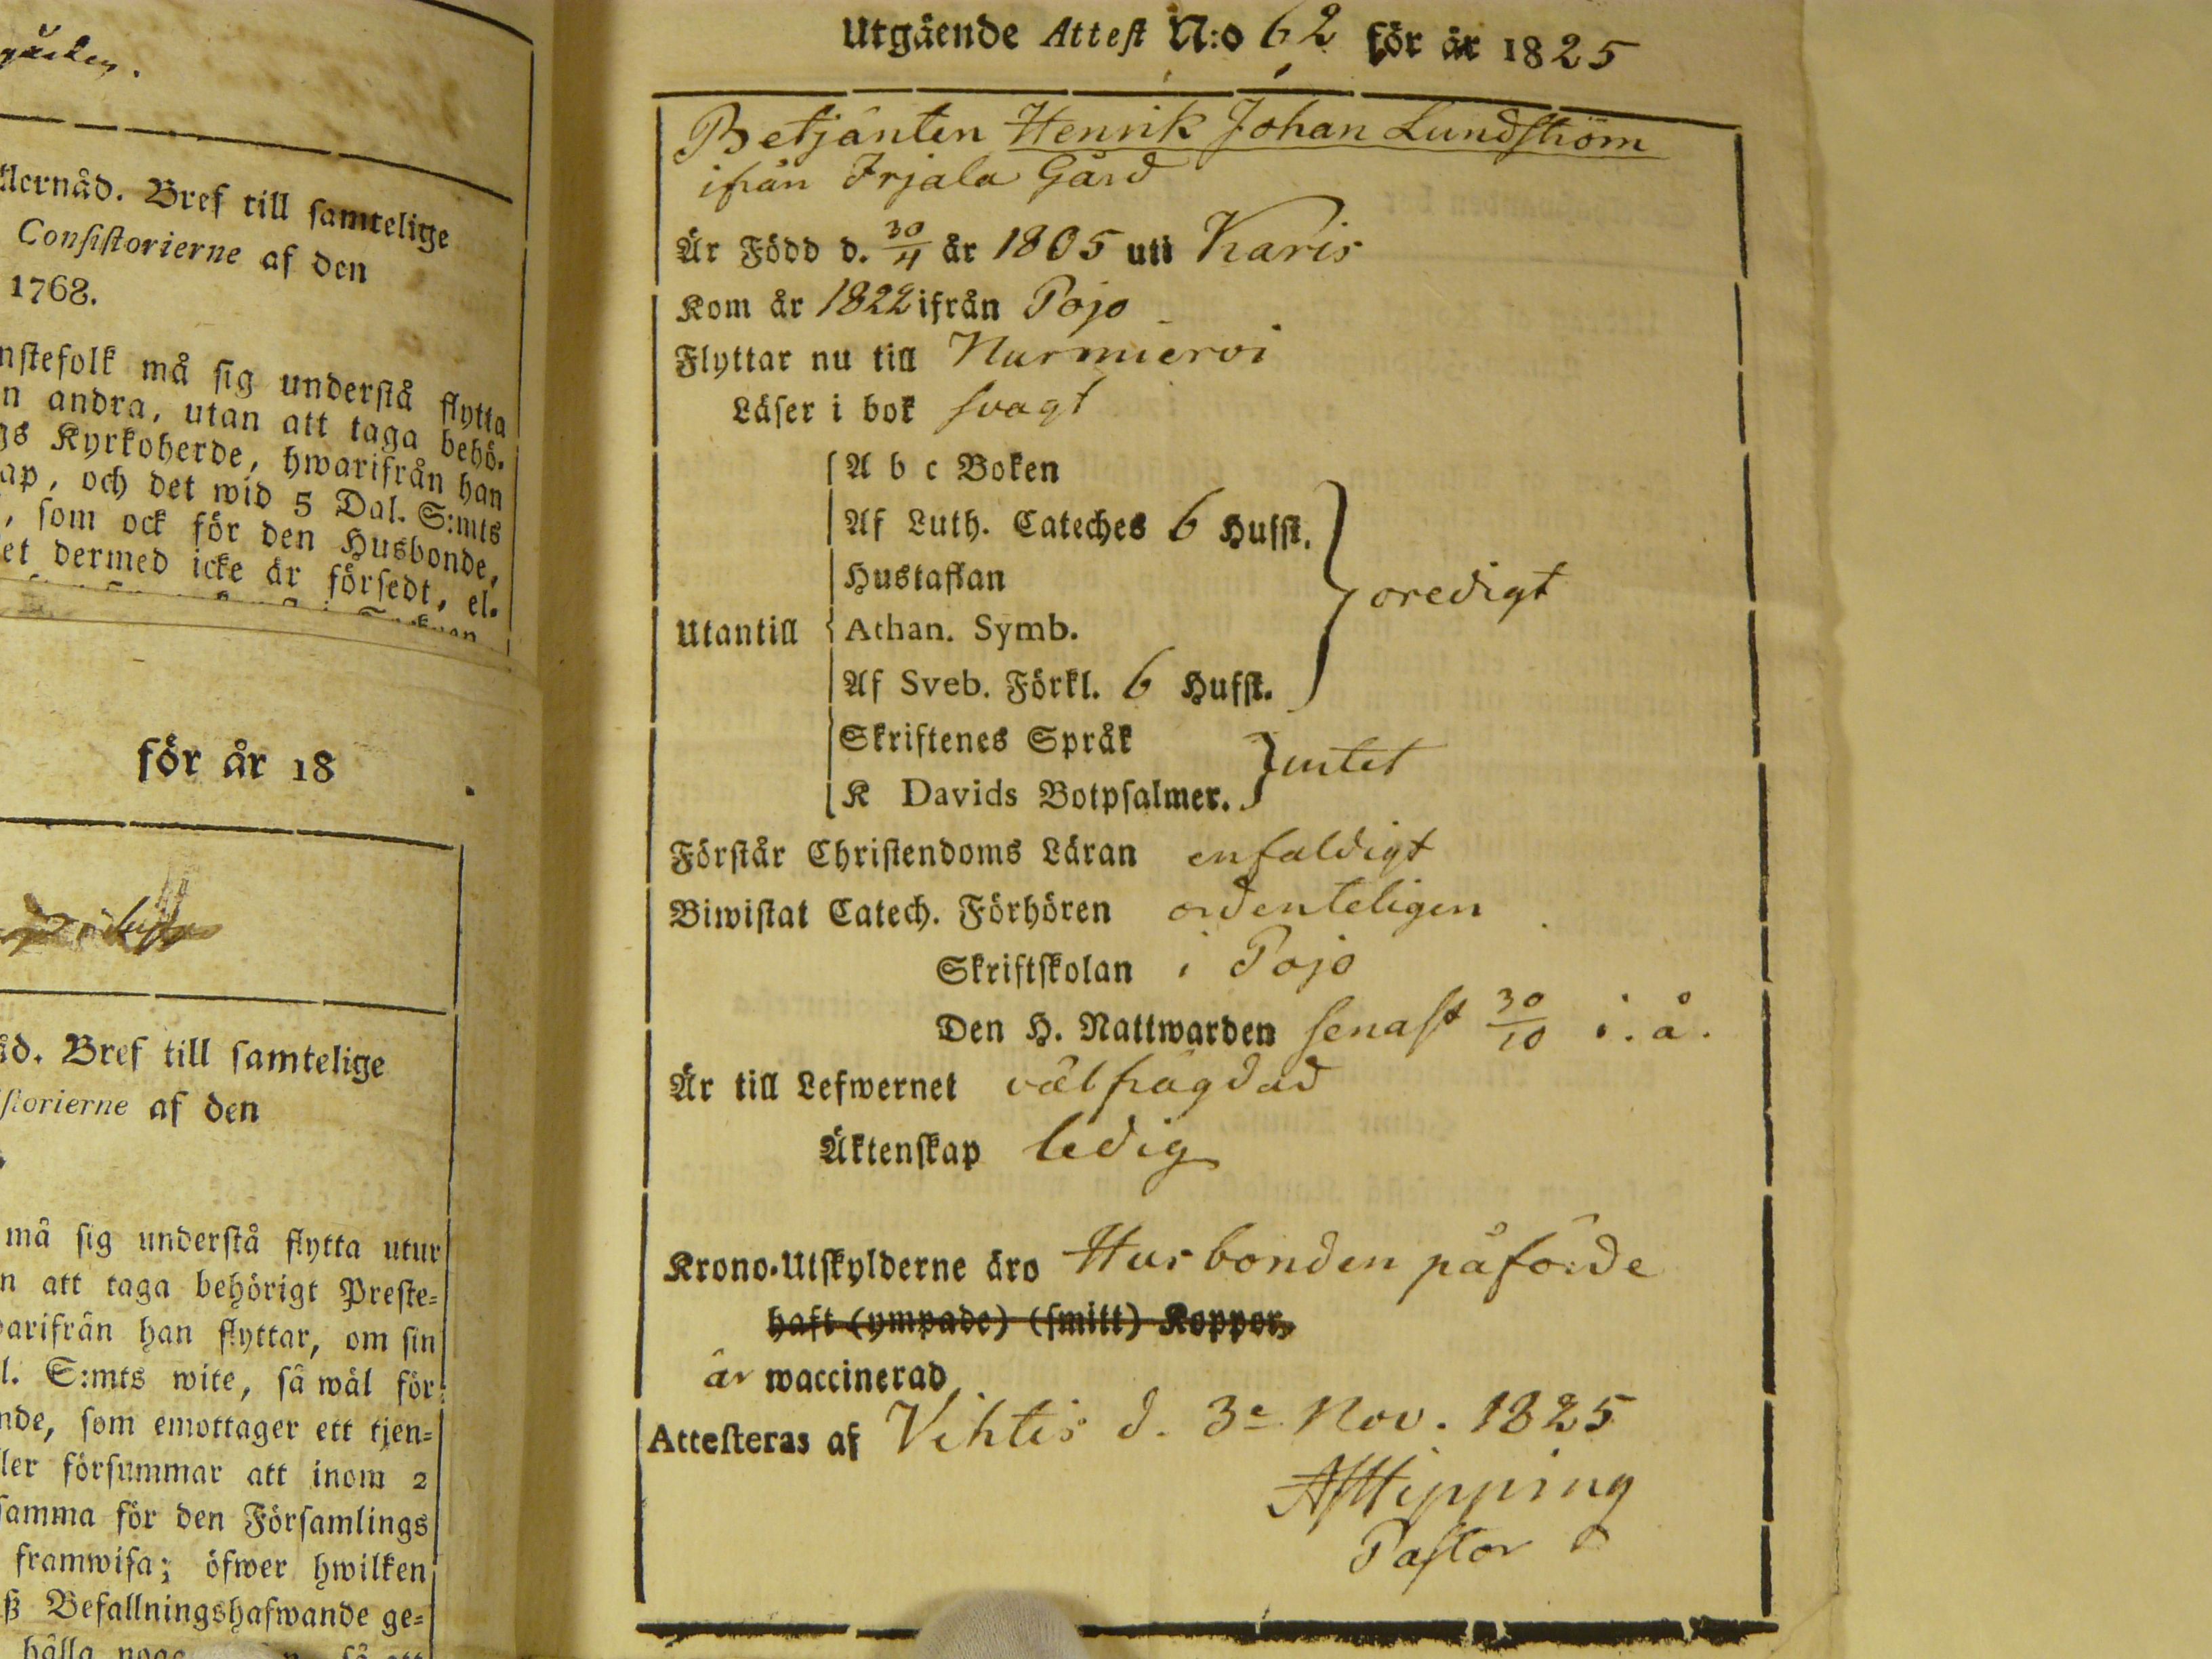 gården.
llernåd. Bref till samtelige
Consistorierne af den
1768.
nstefolk må sig understå flytta
n andra, utan att taga behö-
gs Kyrkoherde, hwarifrån han
ap, och det wid 5 Dal. S:mts
, som ock för den Husbonde,
et dermed icke är försedt, el-
för år 18
åd. Bref till samtelige
istorierne af den
må sig understå flytta utur
n att taga behörigt Preste-
warifrån han flyttar, om sin
l. S:mts wite, så wäl för
nde, som emottager ett tjen-
ler försummar att inom 2
samma för den Församlings
framwisa; öfwer hwilken
ß Befallningshafwande ge-
hålla noga
Utgående Attest N:o 62 för år 1825
Betjänten Henrik Johan Lundström
ifrån Irjala Gård
Är Född d. 30/4 år 1805 uti Karis
Kom år 1822 ifrån Pojo
Flyttar nu till Nurmiervi
Läser i bok svagt
A b c Boken
Af Luth. Cateches 6 Hufst.
Hustaflan
oredigt
Utantill Athan. Symb.
Af Sveb. Förkl. 6 Hufst.
Skriftenes Språk
intet
K Davids Botpsalmer.
Förstår Christendoms Läran enfaldigt
Biwistat Catech. Förhören ordenteligen
Skriftskolan i Pojo
Den H. Nattwarden senast 30/10 i. å.
Är till Lefwernet välfrägdad
Äktenskap ledig
Krono-Utskylderne äro Husbonden påförde
haft (ympade) (smitt) Koppor,
är waccinerad
Attesteras af Vihtis d. 3e Nov. 1825
AJHipping
Pastor